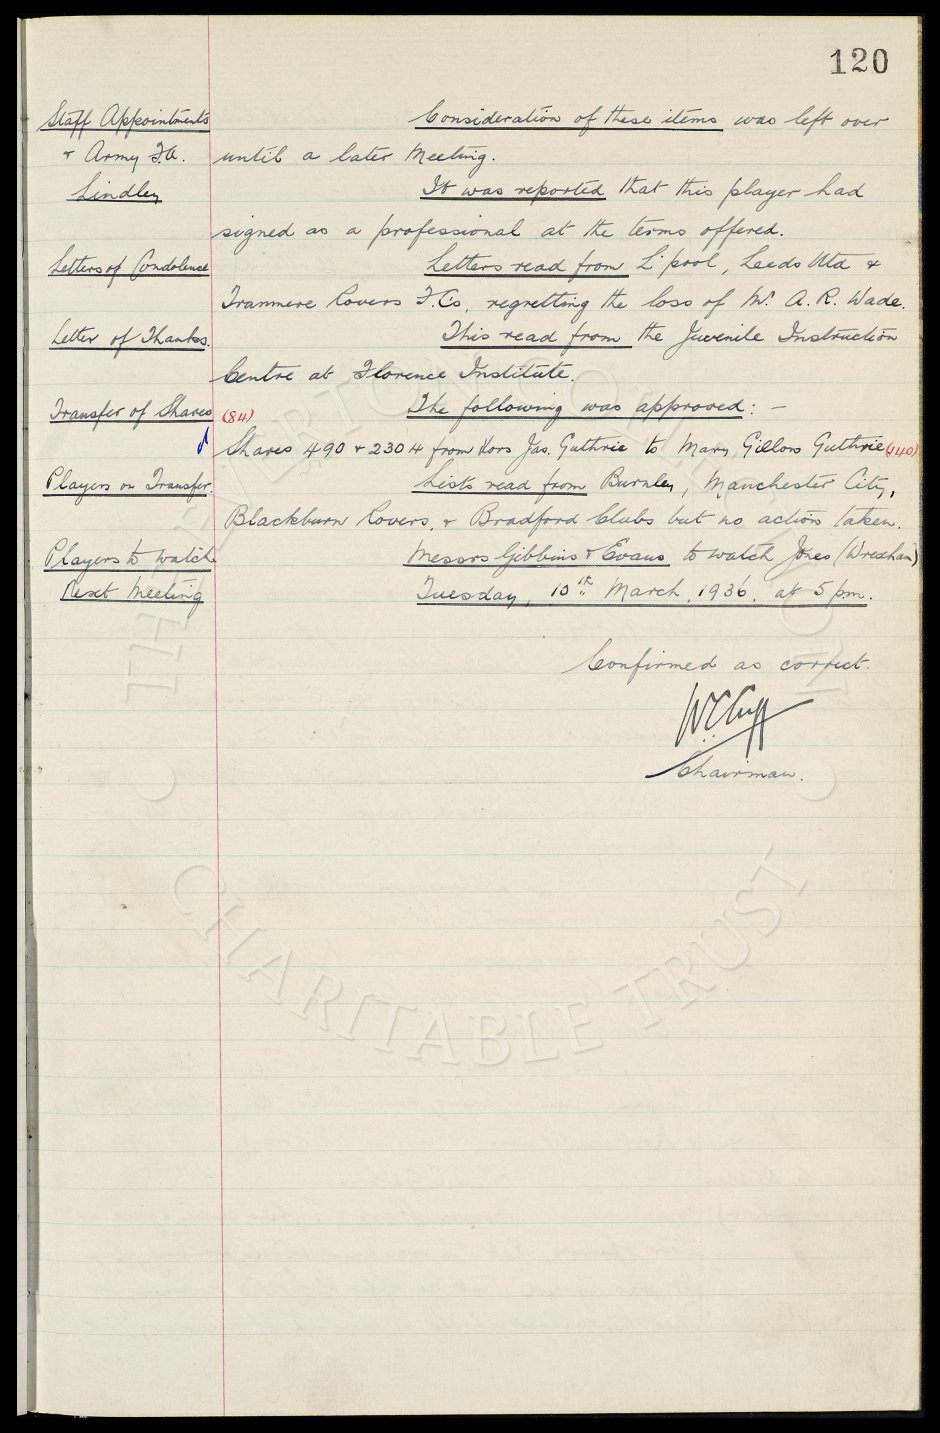 120
Staff Appointments Consideration of these items was left over
& Army F.A. until a later Meeting.
Lindley It was reported that this player had
signed as a professional at the terms offered.
Letters of Condolence Letters read from L'pool, Leeds Utd &
Tranmere Rovers F.C's, regretting the loss of Mr. A. R. Wade.
Letter of Thanks. This read from the Juvenile Instruction
Centre at Florence Institute.
Transfer of Shares (84) The following was approved: —
Shares 490 & 2304 from Xors Jas. Guthrie to Mary Gillow Guthrie (140)
Players on Transfer. Lists read from Burnley, Manchester City,
Blackburn Rovers, & Bradford Clubs but no action taken.
Players to watch Messrs Gibbins & Evans to watch Jones (Wrexham)
Next Meeting Tuesday, 10th March, 1936, at 5 p.m.
Confirmed as correct.
W.C. Cuff
Chairman.
THE EVERTON COLLECTION
CHARITABLE TRUST